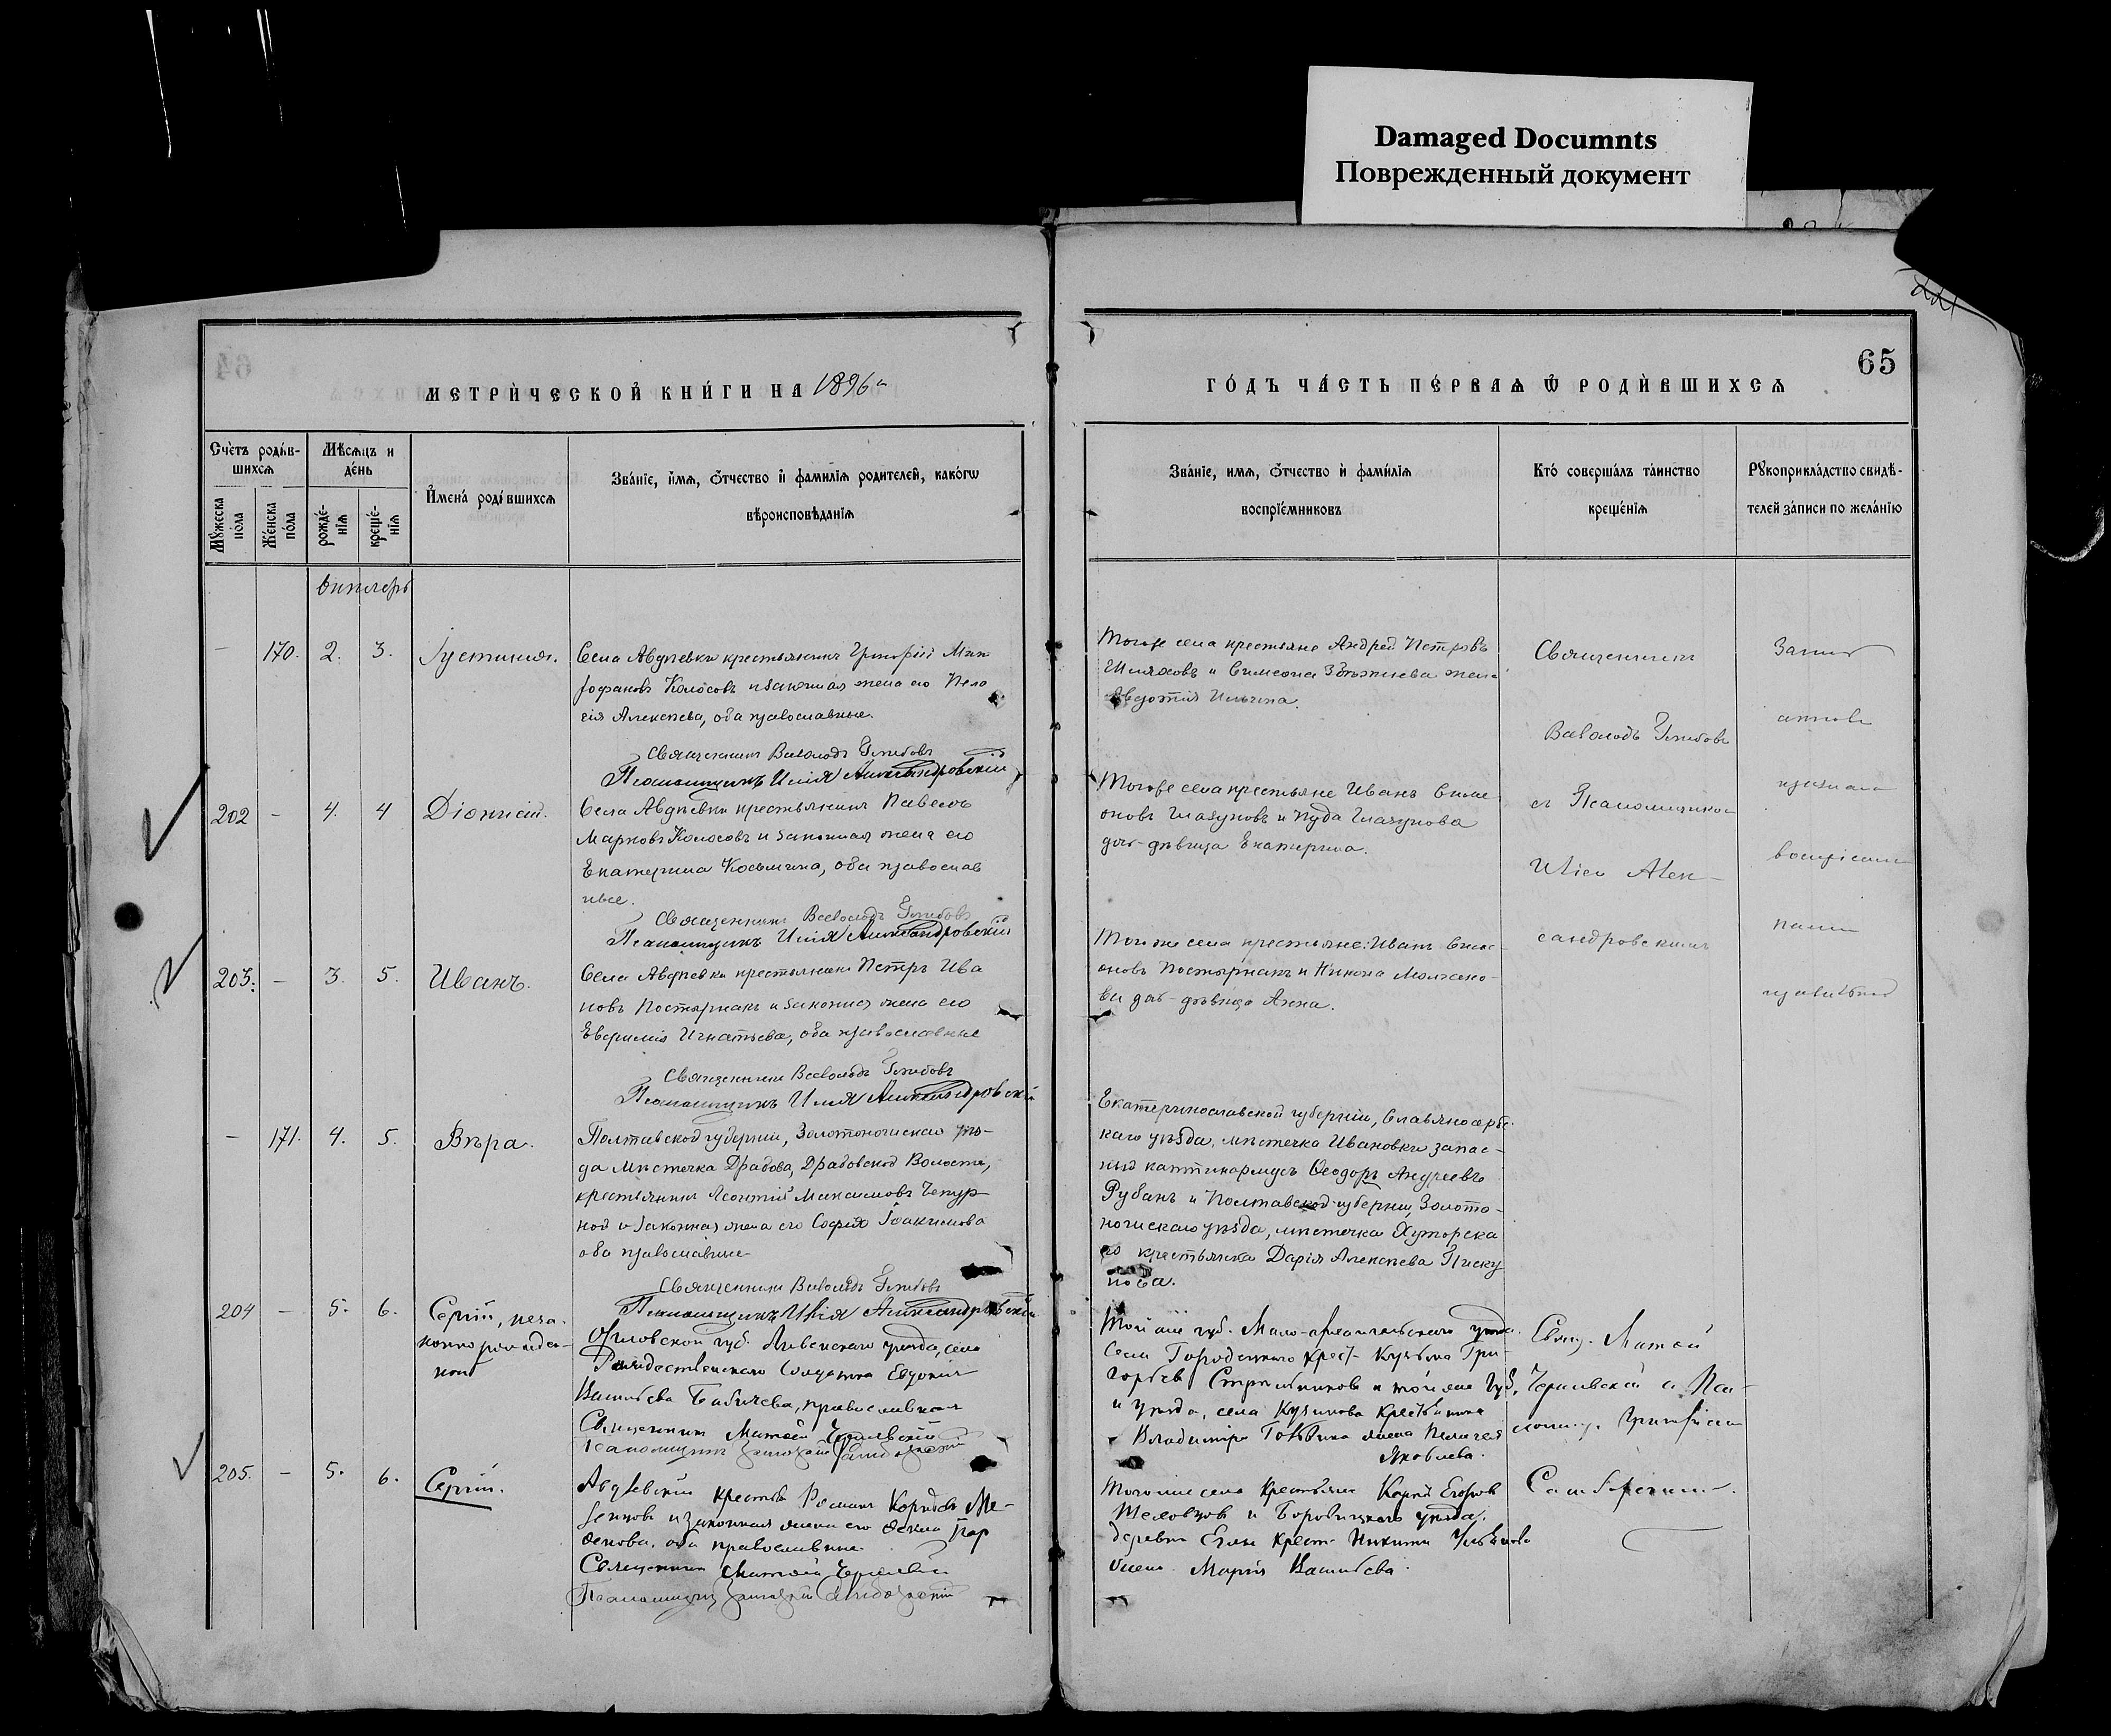 Damaged Documnts
Поврежденный документ
65
МЕТРИ́ЧЕСКОЙ КНИ́ГИ НА 1896й
ГО́ДЪ ЧА́СТЬ ПЕ́РВАѦ Ѡ РОДИ́ВШИХСѦ
Сче́тъ роди́в-
шихсѧ
Мꙋжеска по́ла
Же́нска по́ла
Мѣ́сѧцъ и
де́нь
рожде́-
нїѧ
креще́-
нїѧ
И́мена́ роди́вшихсѧ
Зва́нїе, и́мѧ, ѻ́тчество и҆ фами́лїѧ родителей, како́гѡ
вѣроисповѣ́данїѧ
Зва́нїе, имѧ, ѻ́тчество и҆ фами́лїѧ
воспрїе́мниковъ
Кто́ соверша́лъ та́инство
креще́нїѧ
Рꙋкоприкла́дство свидѣ́-
телей за́писи по жела́нїю
Октябрь
— 170. 2. 3. Іустинія.
Села Авдѣевки крестьянинъ Григорій Мит
рофановъ Колосовъ и законная жена его Пела
гія Алексѣева, оба православные.
Священникъ Всеволодъ Глѣбовъ
Псаломщикъ Илія Александровскій
Тогоже села крестьяне Андрей Петровъ
Шляховъ и Симеона жена
Авдотія Ильина.
Священникъ
Всеволодъ Глѣбовъ
съ Псаломщикомъ
Иліею Алек-
сандровскимъ
202 — 4. 4 Діонисій.
Села Авдѣевки крестьянинъ Павелъ
Марковъ Колосовъ и законная жена его
Екатерина Косьмина, оба православ
ные.
Священникъ Всеволодъ Глѣбовъ
Псаломщикъ Илія Александровскій
Тогоже села крестьяне Иванъ Симе
оновъ Глазуновъ и Іуда Глазунова
дочь-дѣвица Екатерина.
203. — 3. 5. Иванъ.
Села Авдѣевки крестьянинъ Петръ Ива
новъ Постернакъ и законная жена его
Евфимія Игнатьева, оба православные
Священникъ Всеволодъ Глѣбовъ
Псаломщикъ Илія Александровскій
Той же села крестьяне: Иванъ Симе-
оновъ Постернакъ и Никона Молчано-
ва дочь-дѣвица Анна.
— 171. 4. 5. Вѣра.
Полтавской губерніи, Золотоношскаго уѣз-
да мѣстечка Драбова, Драбовской Волости,
крестьянинъ Леонтій Максимовъ Чепур
ной и законная жена его Софія Іоакимова
оба православные
Священникъ Всеволодъ Глѣбовъ
Псаломщикъ Илія Александровскій
Екатеринославской губерніи, Славяносербс-
каго уѣзда, мѣстечка Ивановки запас-
ный каптинармусъ Ѳеодоръ Андреевъ
Рубанъ и Полтавской губерніи, Золото-
ношскаго уѣзда, мѣстечка Хуторска
го крестьянка Дарія Алексѣева Писку
нова.
204 — 5. 6. Сергій, неза-
конно рожден-
ной
Орловской губ. Ливенскаго уѣзда, села
Рождественскаго Солдатка Евдокія
Васильева Бабичева, православная
Священникъ Матѳей Чернявскій
Псаломщикъ
Той же губ. Мало-архангельскаго уѣзда.
Села Городецкаго крест. Кузьма Гри-
горьевъ Стрельниковъ и той же губ.
и уѣзда, села крестьянина
Владиміра жена Пелагея
Яковлева.
Свящ. Матѳей
Чернявскій и Пса-
ломщ. Григорій
205. — 5. 6. Сергій.
Авдѣевскій крестьян. Романъ Карповъ Ме-
зенцовъ и законная жена его
оба православные.
Священникъ Матѳей Чернявскій
Псаломщикъ
Тогоже села крестьянинъ Карпъ Егоровъ
и уѣзда,
деревни крест. Никиты Ульянова
жена Марія Васильева.